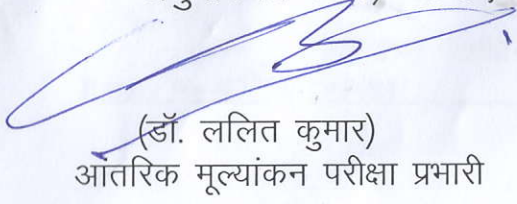 (डॉ. ललित कुमार)
आंतरिक मूल्यांकन परीक्षा प्रभारी